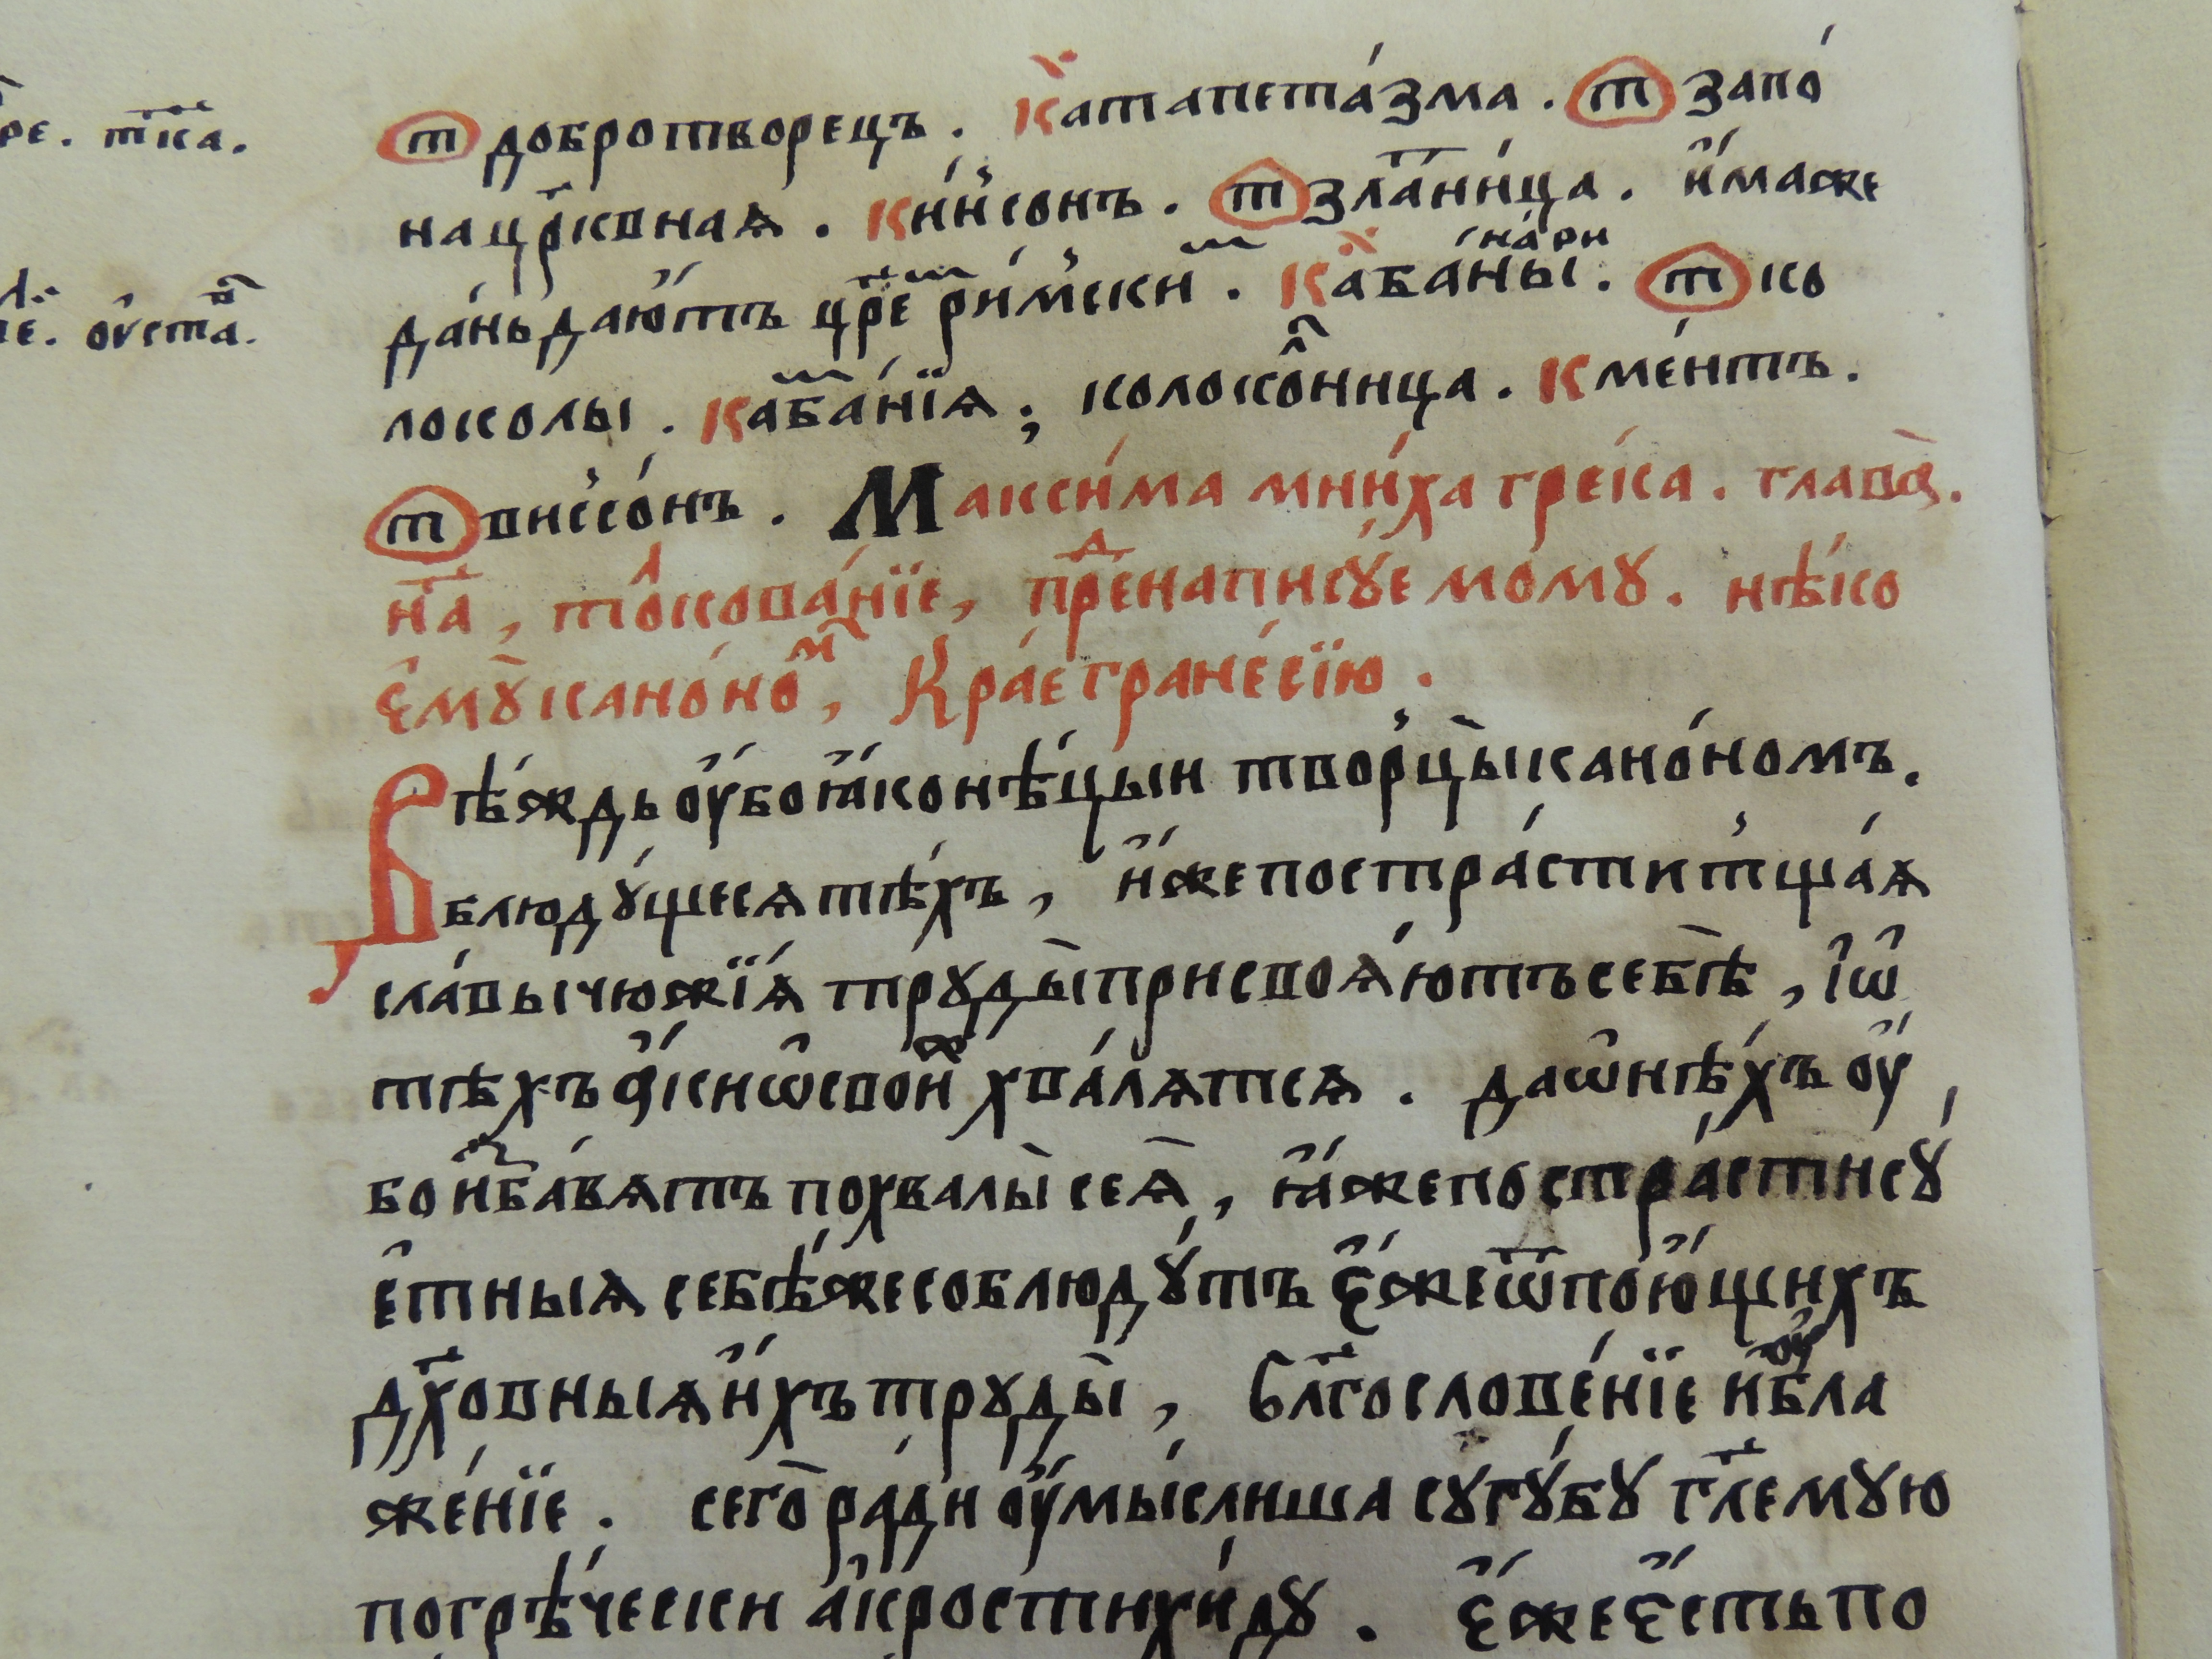 ре. тⷭ҇ка.
ле. ѹ҆ста̑.
т добротворецъ. Катапета́зма. т запо́
нацр҃ковная. Ки́нсонъ. т зла́тни́ца. и҆́маже
да́нь даю́тъ цр҃е ри́мски. Каба́ны нари. т ко
локолы. Кабанїѧ; колоко́лница. Кме́нтъ.
т виссо́нъ. Макси́ма мни́ха гре́ка. глава̀.
на, толкова́нїе, пред̾написꙋ́емомꙋ. нѣ́ко
є҆мꙋ̀ кано́ном, Кра́егране́сїю.
Вѣ́ждь ѹ҆́бо ꙗ҆́ко нѣ́цыи творцы̀ кано́номъ.
блюдꙋ́щесѧ тѣ́хъ, и҆́же по стра́сти тща́ѧ
сла́вы чюжі́ѧ трꙋды̀ присвоѧ́ютъ себѣ̀, і҆ ѡ҆
тѣхъ ꙗ҆́ки ѡ҆ свои́х хва́лѧтсѧ. да ѡ҆ ни́хъ ѹ҆́
бо и҆зба́вѧтъ похвалы̀ сеѧ̀, ꙗ҆́же по стра́сти сꙋ
е́тныѧ себѣ́же соблюдꙋ́тъ є҆́же ѿ пою́щихъ
дх҃овныѧ и҆́хъ трꙋды̀, бл҃гослове́нїе и҆ ѹбла
же́нїе. сего̀ ра́ди ѹ҆мы́слиша сꙋгꙋ́бꙋ гл҃емꙋю
по грѣ́чески а҆кростихи́дꙋ. є҆́же є҆́сть по